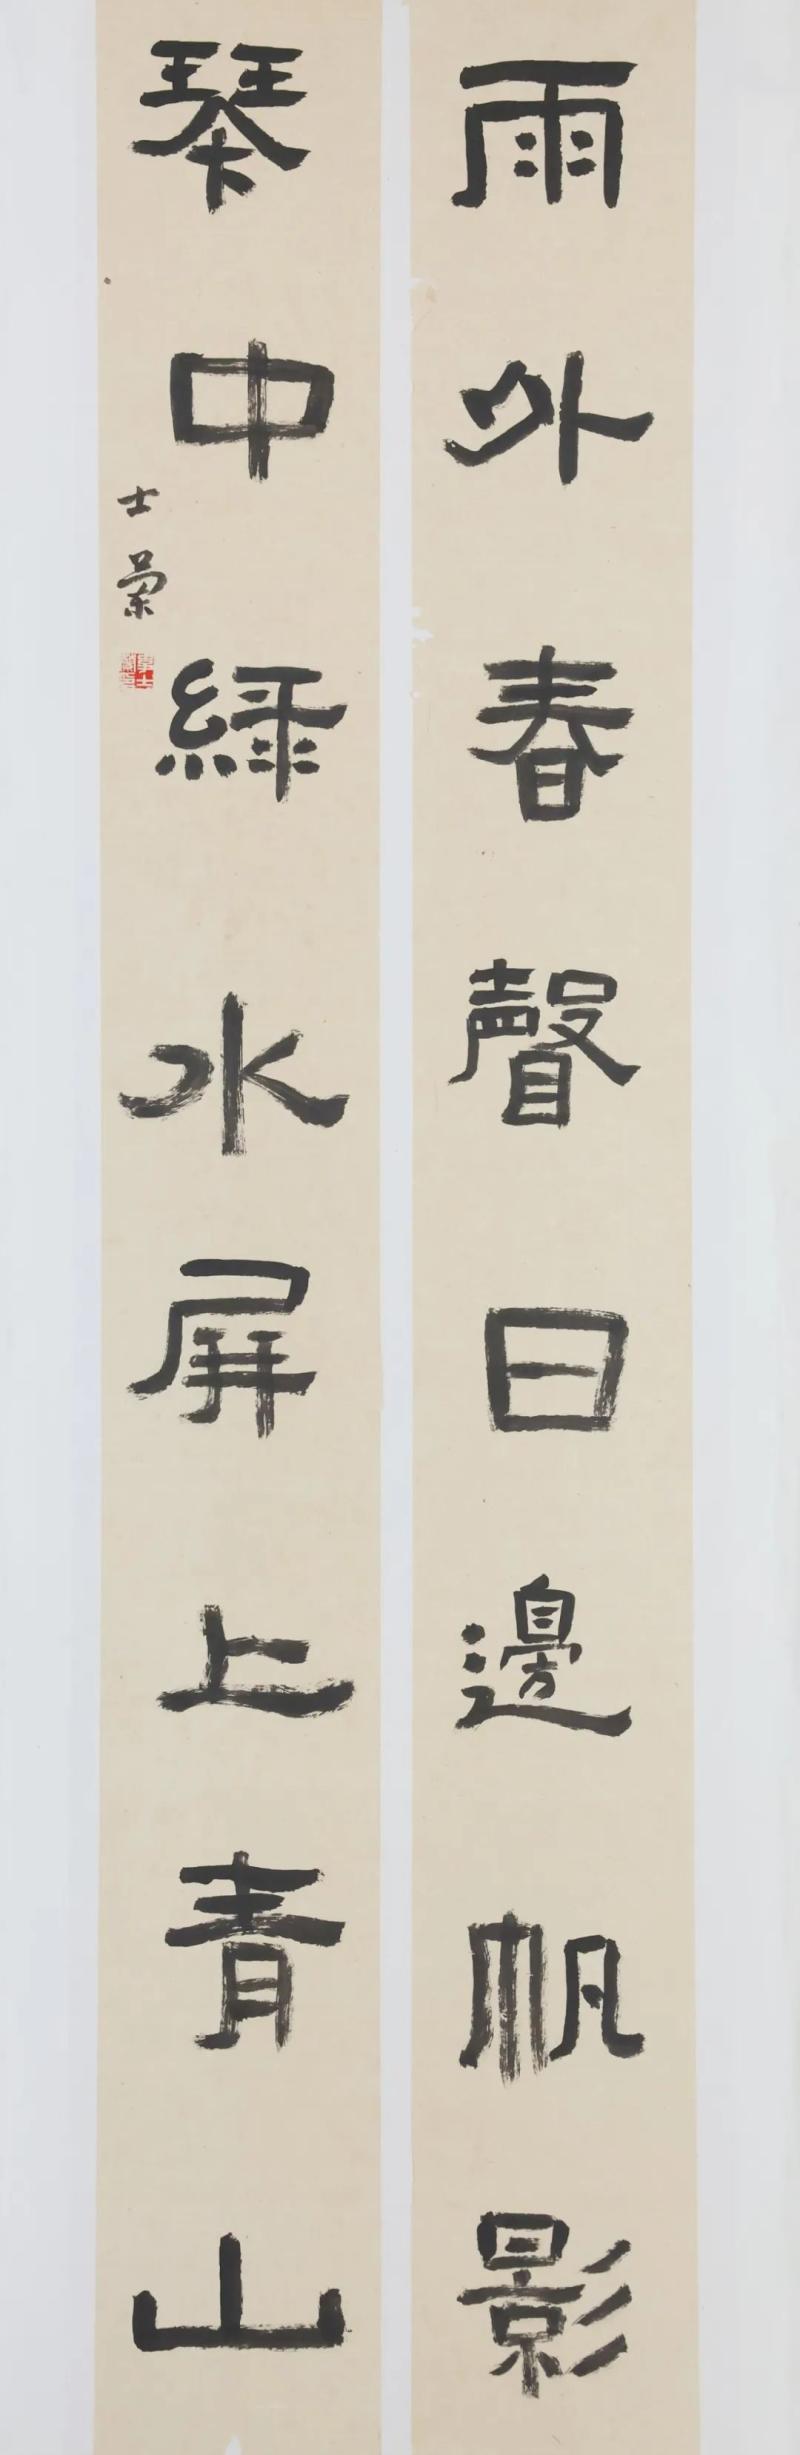 雨外春聲日邊帆影
琴中綠水屏上青山
士蘭